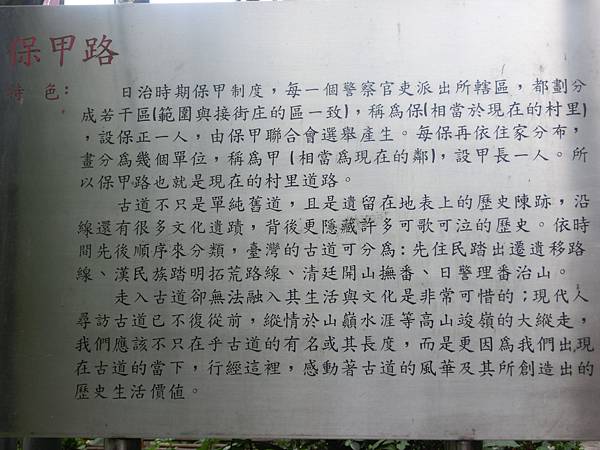 保甲路
特 色:
日治時期保甲制度，每一個警察官吏派出所轄區，都劃分
成若干區(範圍與接街庄的區一致)，稱為保(相當於現在的村里)
，設保正一人，由保甲聯合會選舉產生。每保再依住家分布，
畫分為幾個單位，稱為甲 (相當為現在的鄰)，設甲長一人。所
以保甲路也就是現在的村里道路。
古道不只是單純舊道，且是遺留在地表上的歷史陳跡，沿
線還有很多文化遺蹟，背後更隱藏許多可歌可泣的歷史。依時
間先後順序來分類，臺灣的古道可分為:先住民踏出遷遺移路
線、漢民族踏明拓荒路線、清廷開山撫番、日警理番治山。
走入古道卻無法融入其生活與文化是非常可惜的;現代人
尋訪古道已不復從前，縱情於山巔水涯等高山竣嶺的大縱走，
我們應該不只在乎古道的有名或其長度，而是更因為我們出現
在古道的當下，行經這裡，感動著古道的風華及其所創造出的
歷史生活價值。